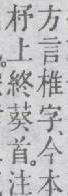 方言椎字今本
杼上終葵首。注